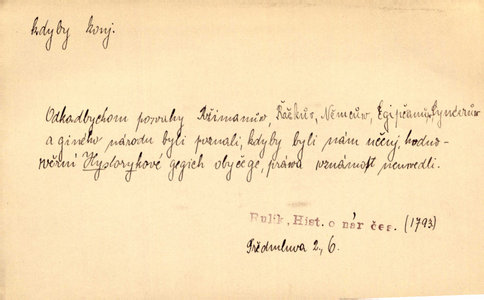 kdyby konj.
Odkadbychom powahy Ržimanůw, Ržekůw, Němcůw, Egipčanů,
a giného národu byli poznali, kdyby byli nám učený, hodno-
wěrní Hystorykové gegich obyčege, práwa w známost neuwedli.
Rulík, Hist. o nár čes. (1793)
Předmluwa 2, 6.